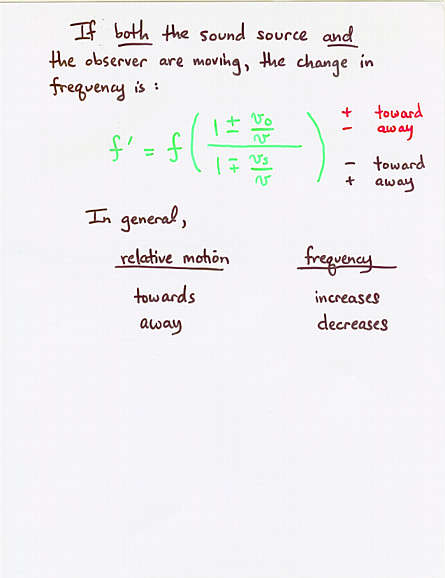 If both the sound source and
the observer are moving, the change in
frequency is :
f' = f ( (1 ± v₀/v) / (1 ∓ vₛ/v) )
+ toward
- away
- toward
+ away
In general,
relative motion frequency
towards increases
away decreases